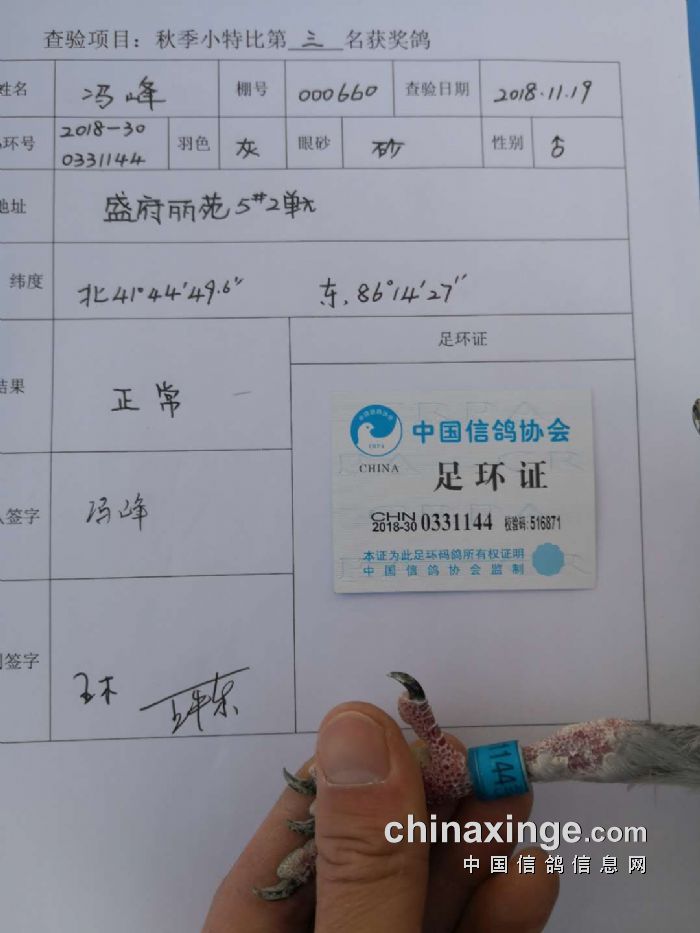 查验项目：秋季小特比第三名获奖鸽
姓名 冯峰 棚号 000660 查验日期 2018.11.19
环号 2018-30 0331144 羽色 灰 眼砂 砂 性别 ♂
地址 盛府丽苑5#2单元
纬度 北41°44′49.6″ 东.86°14′27″
结果 正常 足环证
中国信鸽协会
CHINA
足环证
CHN
2018-30 0331144 校验码:516871
本证为此足环码鸽所有权证明
中国信鸽协会监制
签字 冯峰
签字
1144
chinaxinge.com
中国信鸽信息网